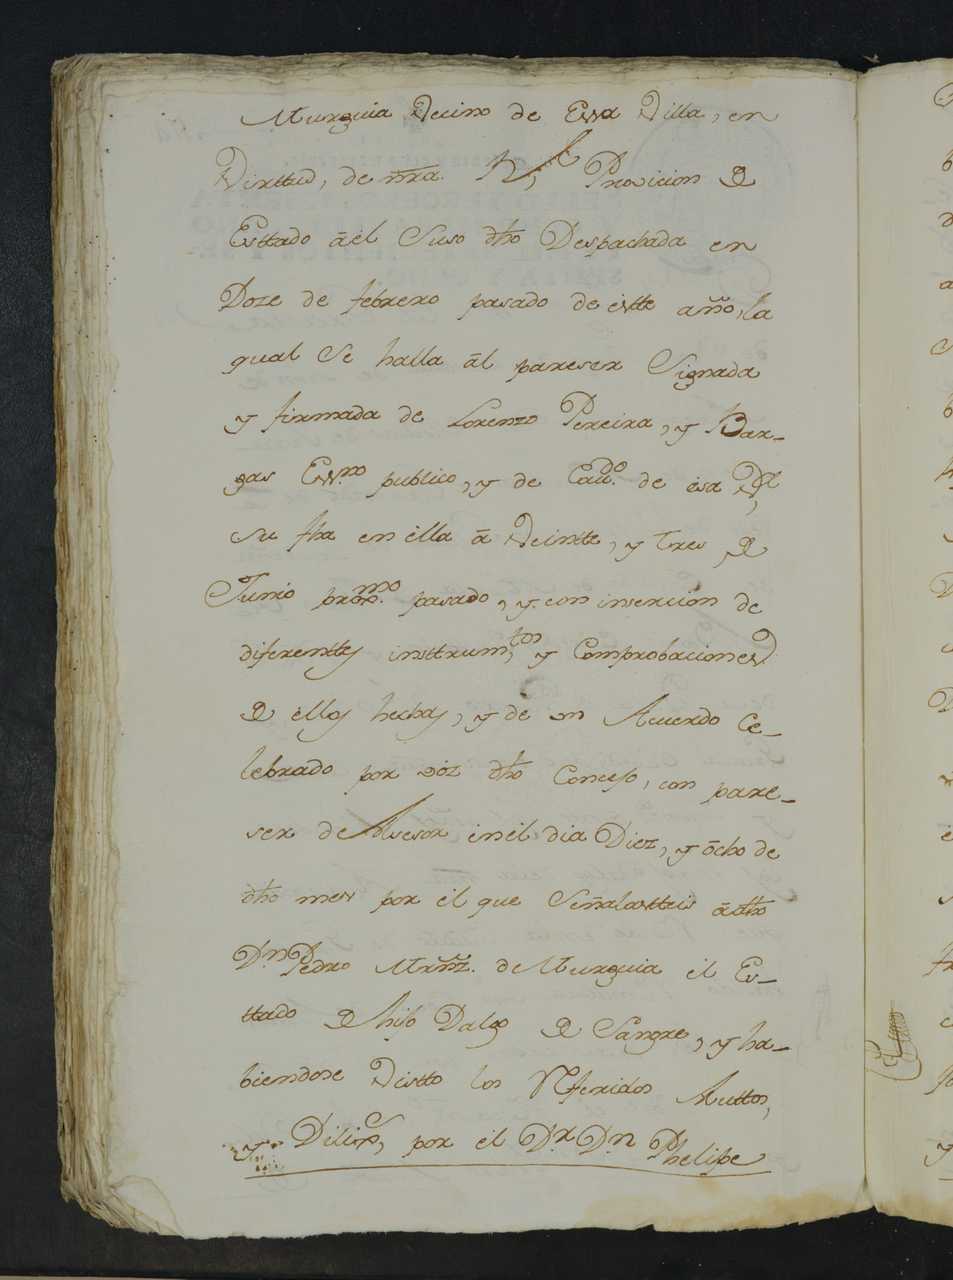 Murguia Vecino de Essa Villa, en
Virttud, de ñra. Rl, Provicion de
Esttado ael Suso dho Despachada en
Doze de febrero pasado de estte año, la
qual Se halla al pareser Signada
y firmada de Lorenzo Pereira, y Bar-
gas Essno. publico, y de Cavdo. de esa Va,
su fha en ella a Veintte, y tres de
Junio proxmo. pasado, y con insercion de
diferenttes insttrumtos, y Comprobaciones
de ellos hechas, y de un Acuerdo Ce-
lebrado por voz dho Consejo, con pare-
ser de Asesor en el dia Diez, y ocho de
dho mes por el que Señalastteis a dho
Dn. Pedro Mrñz. de Murguia el Es-
ttado de hijo Dalgo de Sangre, y ha-
biendose Vistto los Referidos Auttos,
y Dilixs, por el Dr. Dn. Phelipe